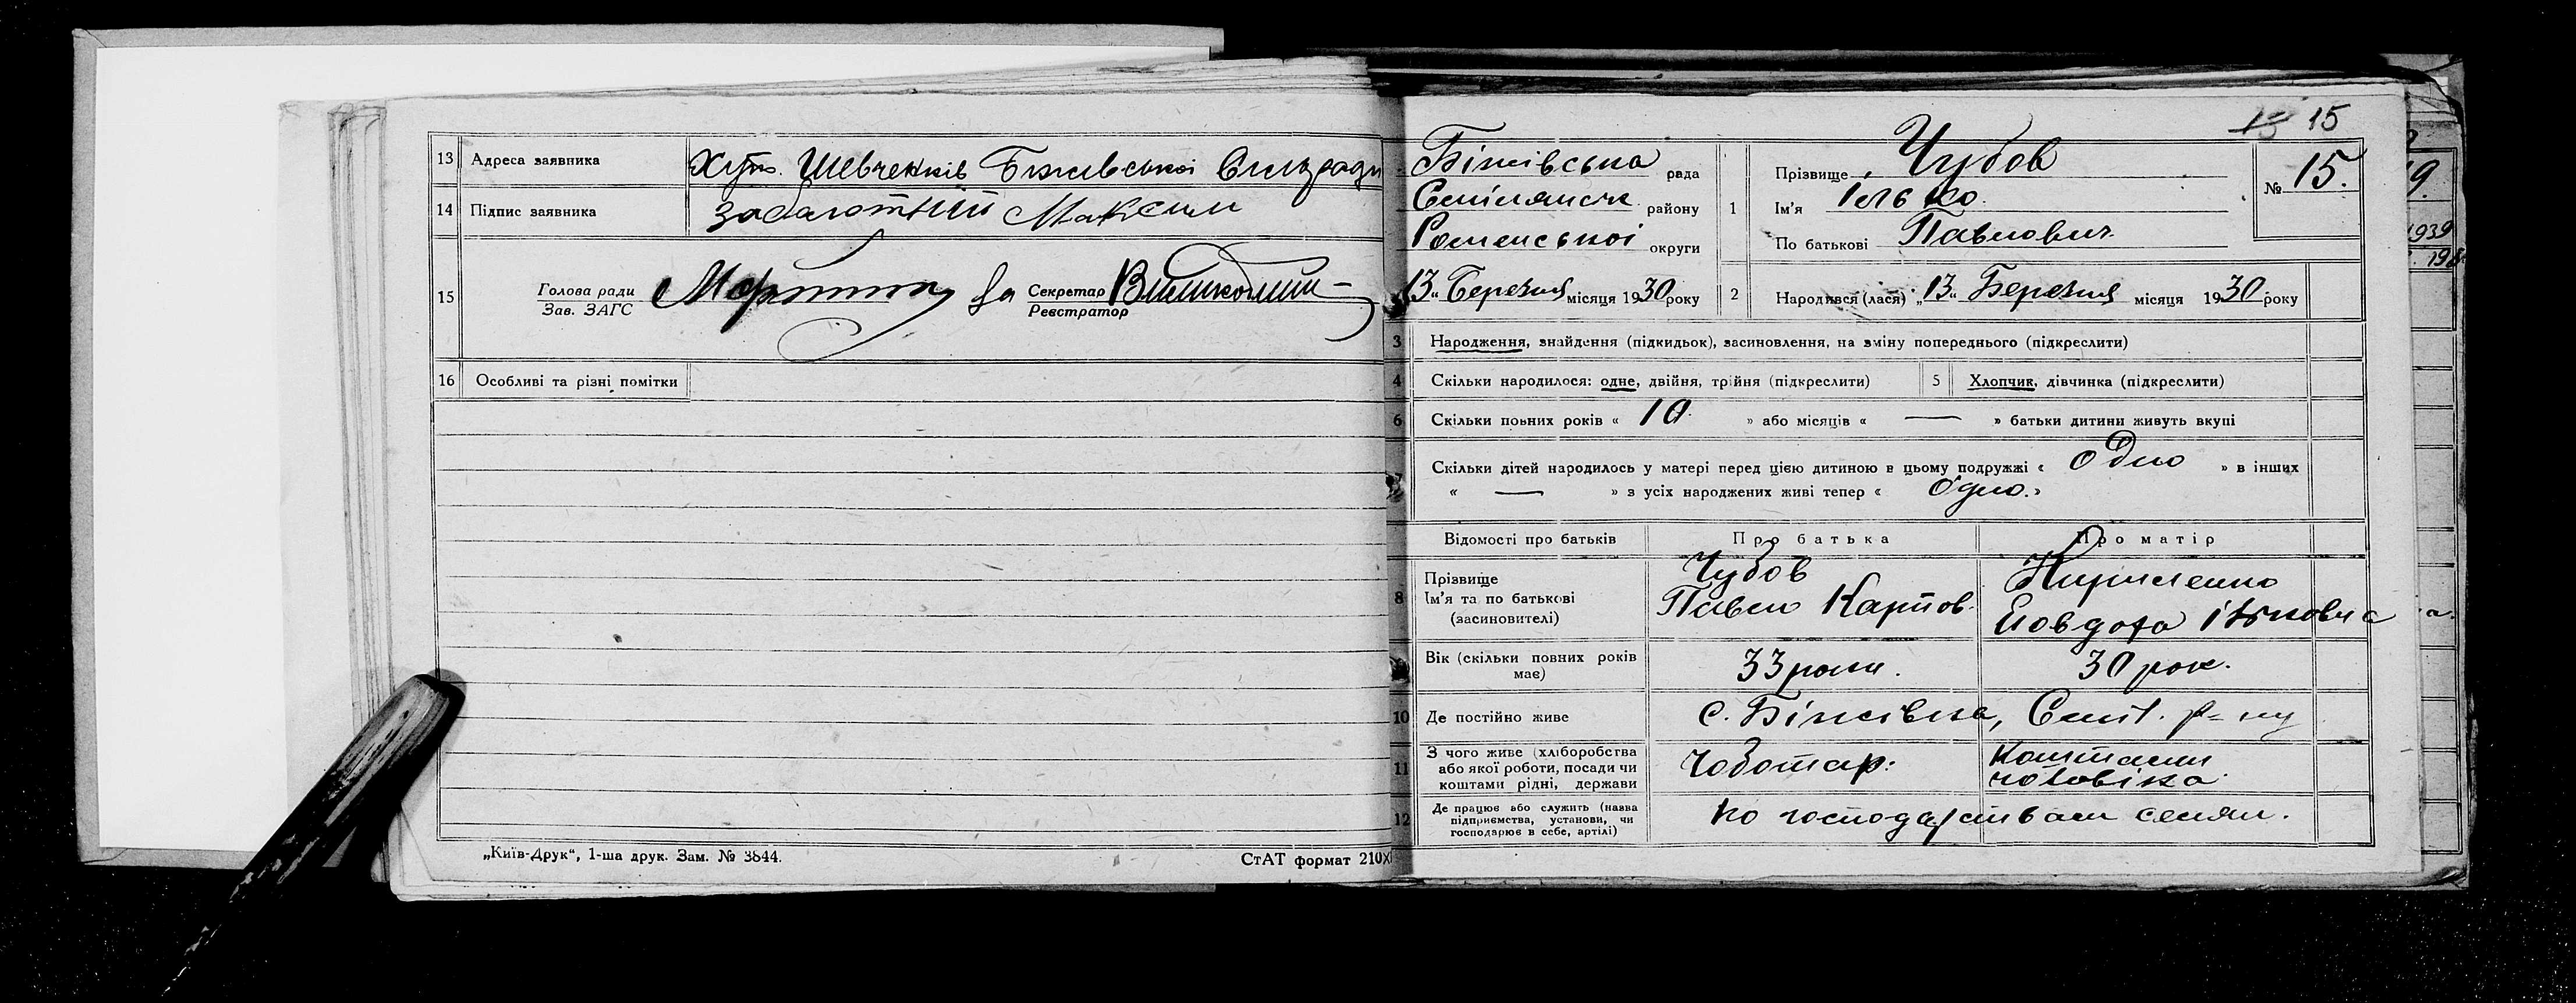 13 Адреса заявника Хут. Шевченків Біжівської Сільради
14 Підпис заявника Заболотний Максим
15 Голова ради За Секретар
Зав. ЗАГС Реєстратор
16 Особливі та різні помітки
„Київ-Друк“, 1-ша друк. Зам. № 3844.
СтАТ формат 210×
13 15
Біжівська рада
району
Роменської округи
„13“ Березня місяця 1930 року
1 Прізвище Чубов
Ім’я Ілько
По батькові Павлович
№ 15.
2 Народився (лася) „13“ Березня місяця 1930 року
3 Народження, знайдення (підкидьок), засиновлення, на зміну попереднього (підкреслити)
4 Скільки народилося: одне, двійня, трійня (підкреслити) 5 Хлопчик, дівчинка (підкреслити)
6 Скільки повних років « 10 » або місяців « — » батьки дитини живуть вкупі
7 Скільки дітей народилось у матері перед цією дитиною в цьому подружжі « одно » в інших
« — » з усіх народжених живі тепер « Одно. »
Відомості про батьків Про батька Про матір
8 Прізвище
Ім’я та по батькові
(засиновителі)
Чубов
Павло Карпов.
Кириленко
Явдоха
Вік (скільки повних років
має)
33 роки.
30 рок.
10 Де постійно живе с. Біжівка, Сміл. р-ну
11 З чого живе (хліборобства
або якої роботи, посади чи
коштами рідні, держави
Чоботар.
Коштами
чоловіка.
12 Де працює або служить (назва
підприємства, установи, чи
господарює в себе, артілі)
по господарствам селян.